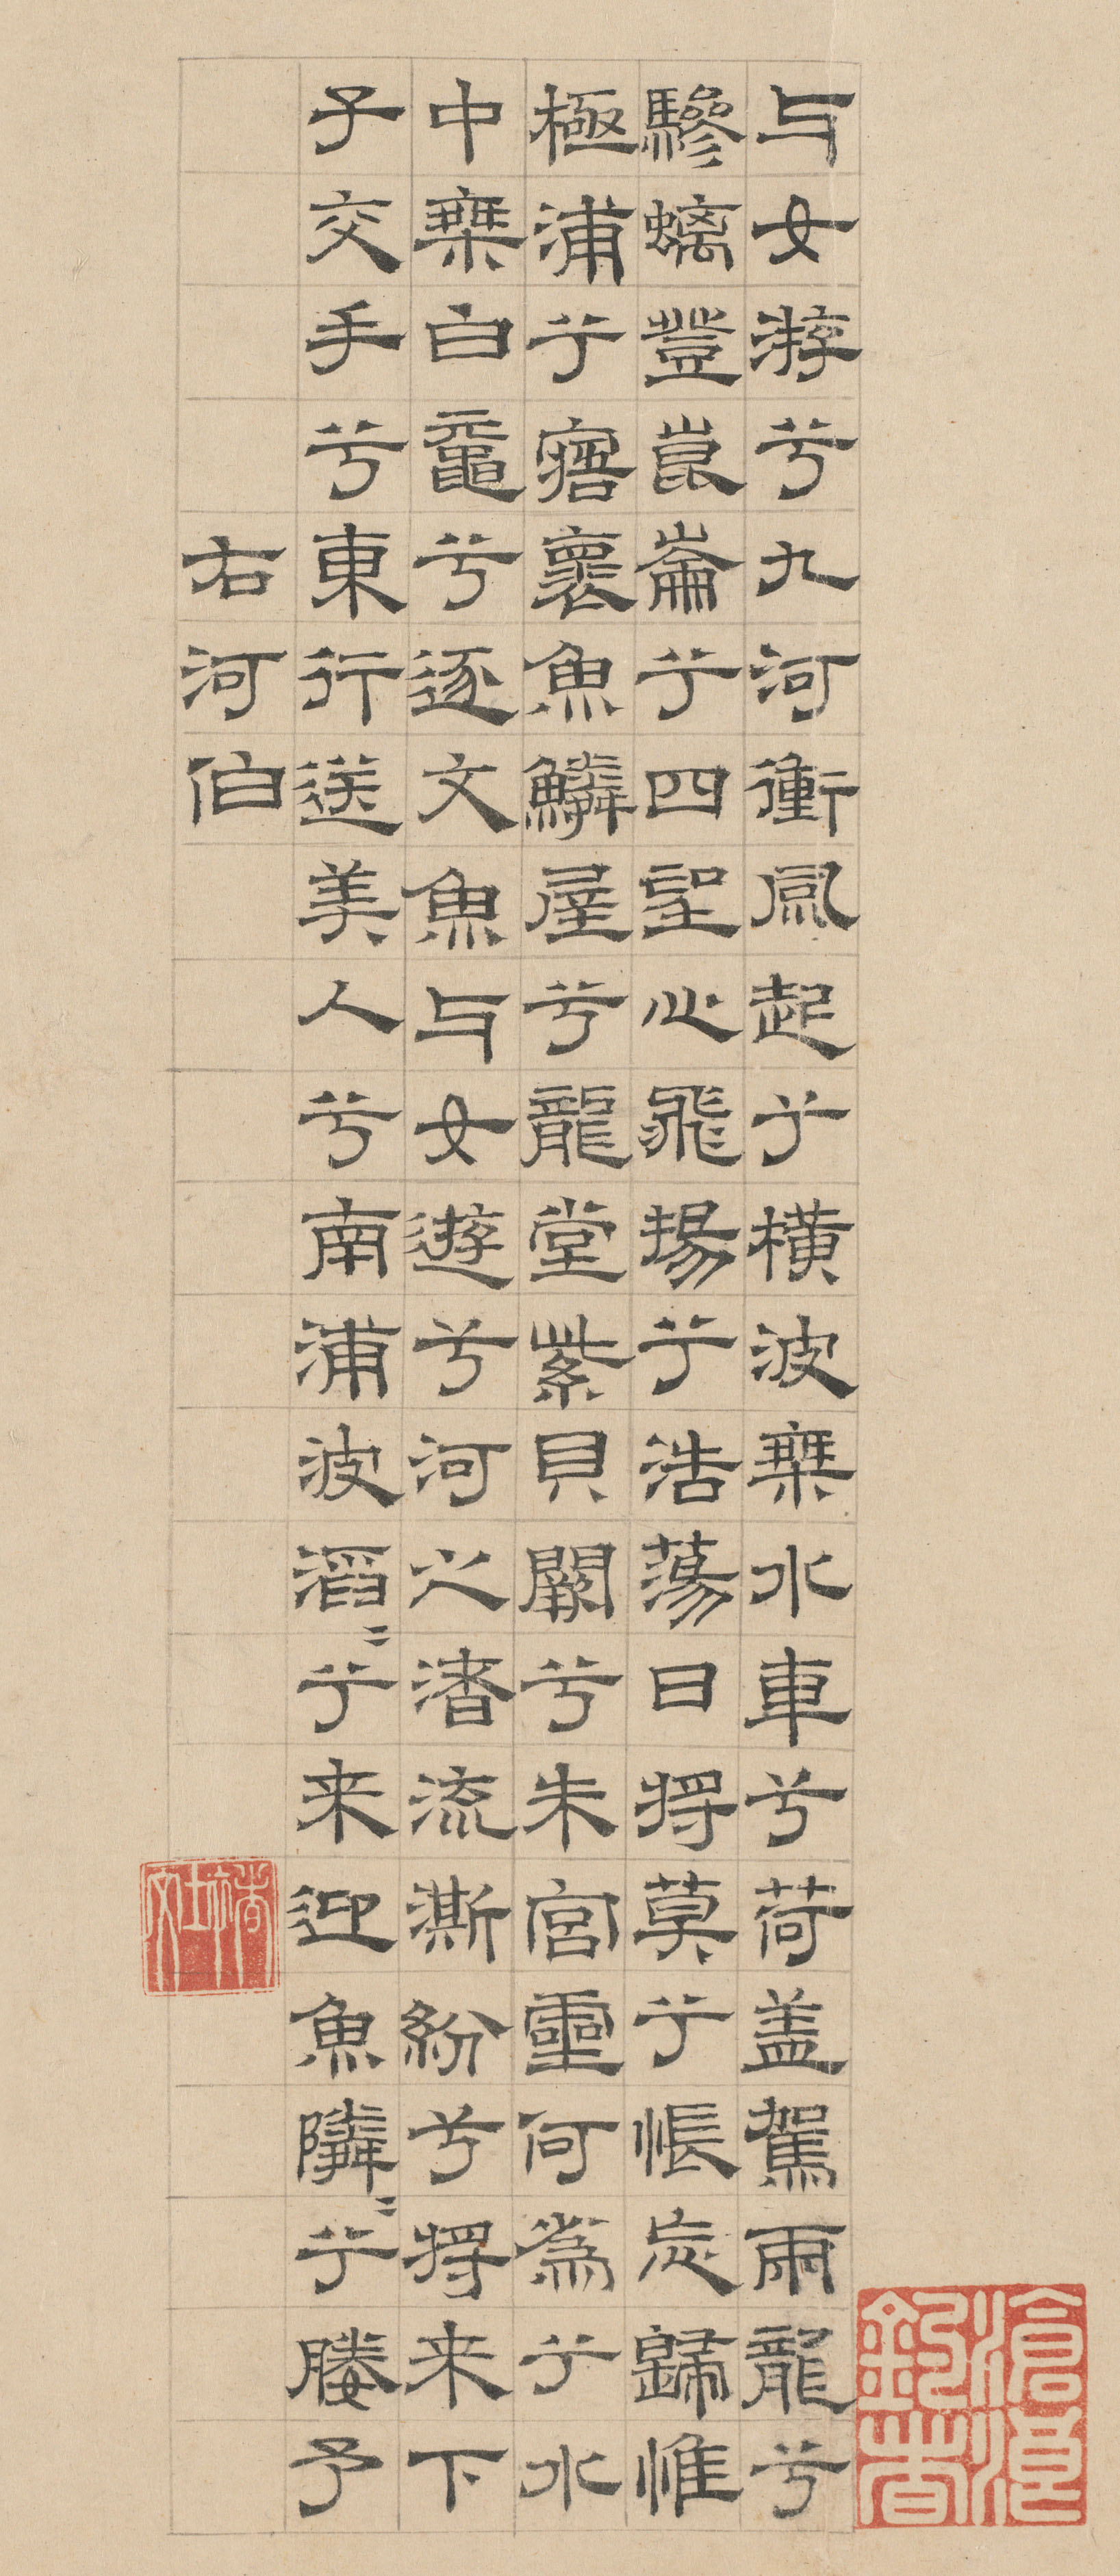 与女游兮九河衝風起兮橫波椉水車兮荷盖駕兩龍兮
驂螭登崑崙兮四望心飛揚兮浩蕩日將莫兮悵忘歸惟
極浦兮寤褱魚鱗屋兮龍堂紫貝闕兮朱宮靈何為兮水
中椉白黿兮逐文魚与女遊兮河之渚流澌紛兮將来下
子交手兮東行送美人兮南浦波滔〻兮来迎魚隣〻兮媵予
右河伯
滄浪釣者